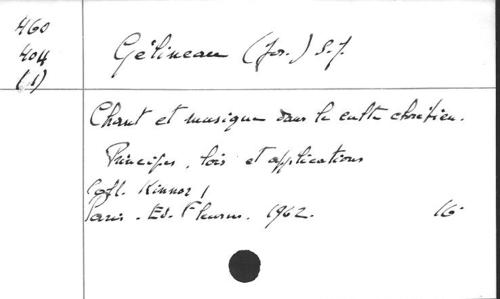 460
404
(1)
Gélineau (Jos.) S.J.
Chant et musique dans le culte chrétien.
Principes, lois et applications
Coll. Kinnor 1
Paris. Ed. Fleurus. 1962. 16°